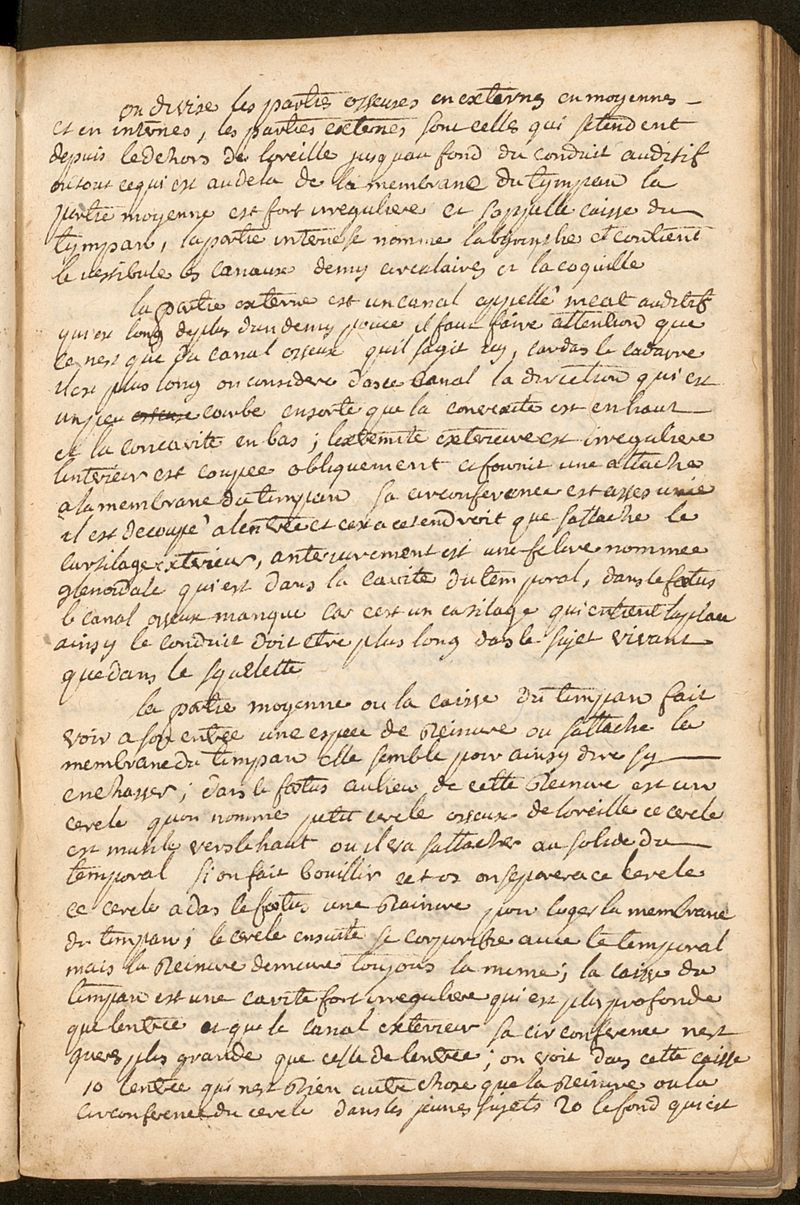 on divise les parties osseuses en externes en moyennes
et en internes, les parties externes sont celles qui setendent
depuis ledehors de loreille jusquau fond du conduit auditif
outout cequi est audela de la membrane du tympan la
partie moyenne est fort irreguliere et sappelle caisse du
tympan, lapartie interne se nomme labyrinthe et contient
le vestibule les canaux demy circulaires et la coquille
la partie externe est un canal appellé meat auditif
qui est long deplus dundemy pouce il faut faire attention que
ce nest que du canal osseux quil sagit icy, car das le cadavre
il est plus long on considere dasce canal la direction qui est
un peu osseuse courbe ensorte que la convexite est en haut
et la concavite en bas; lextremite exterieure est irreguliere
linterieur est coupee obliquement et fournit une attache
a la membrane du timpan sa circonference est asses unie
il est decoupé a lentree et cest a cet endroit que sattache le
cartilage exterieur, anterieurement est une felure nommee
glenoidale qui est dans la cavite du temporal, dans le fœtus
le canal osseux manque car cest un casilage qui entient laplace
ainsy le conduit doit etre plus long das le sujet vivant
que dans le squelette
la partie moyenne ou la caisse du timpan fait
voir a son entree une espece de Reinure ou sattache la
membrane du timpan elle semble pour ainsy dire sy
enchasser; dans le fœtus aulieu de cette Reinure est un
cercle quon nomme petit cercle osseux de loreille ce cercle
est mutile vers le haut ou il va sattacher au solide du
temporal si on fait bouillir cet os on separera ce cercle
ce cercle a das le fœtus une Rainure pour loger la membrane
du timpan; le cercle ensuite se conjointre avec le temporal
mais la Reinure demeure toujours la meme; la caisse du
timpan est une cavite fort irreguliere qui est plus profonde
que lentree et que le canal exterieur sa circonference nest
queres plus grande que celle de lentree; on voit das cette caisse
1o lentree qui nest Rien autre chose que la Reinure ou la
circonference du cercle dans les jeunes sujets 2o le fond qui est